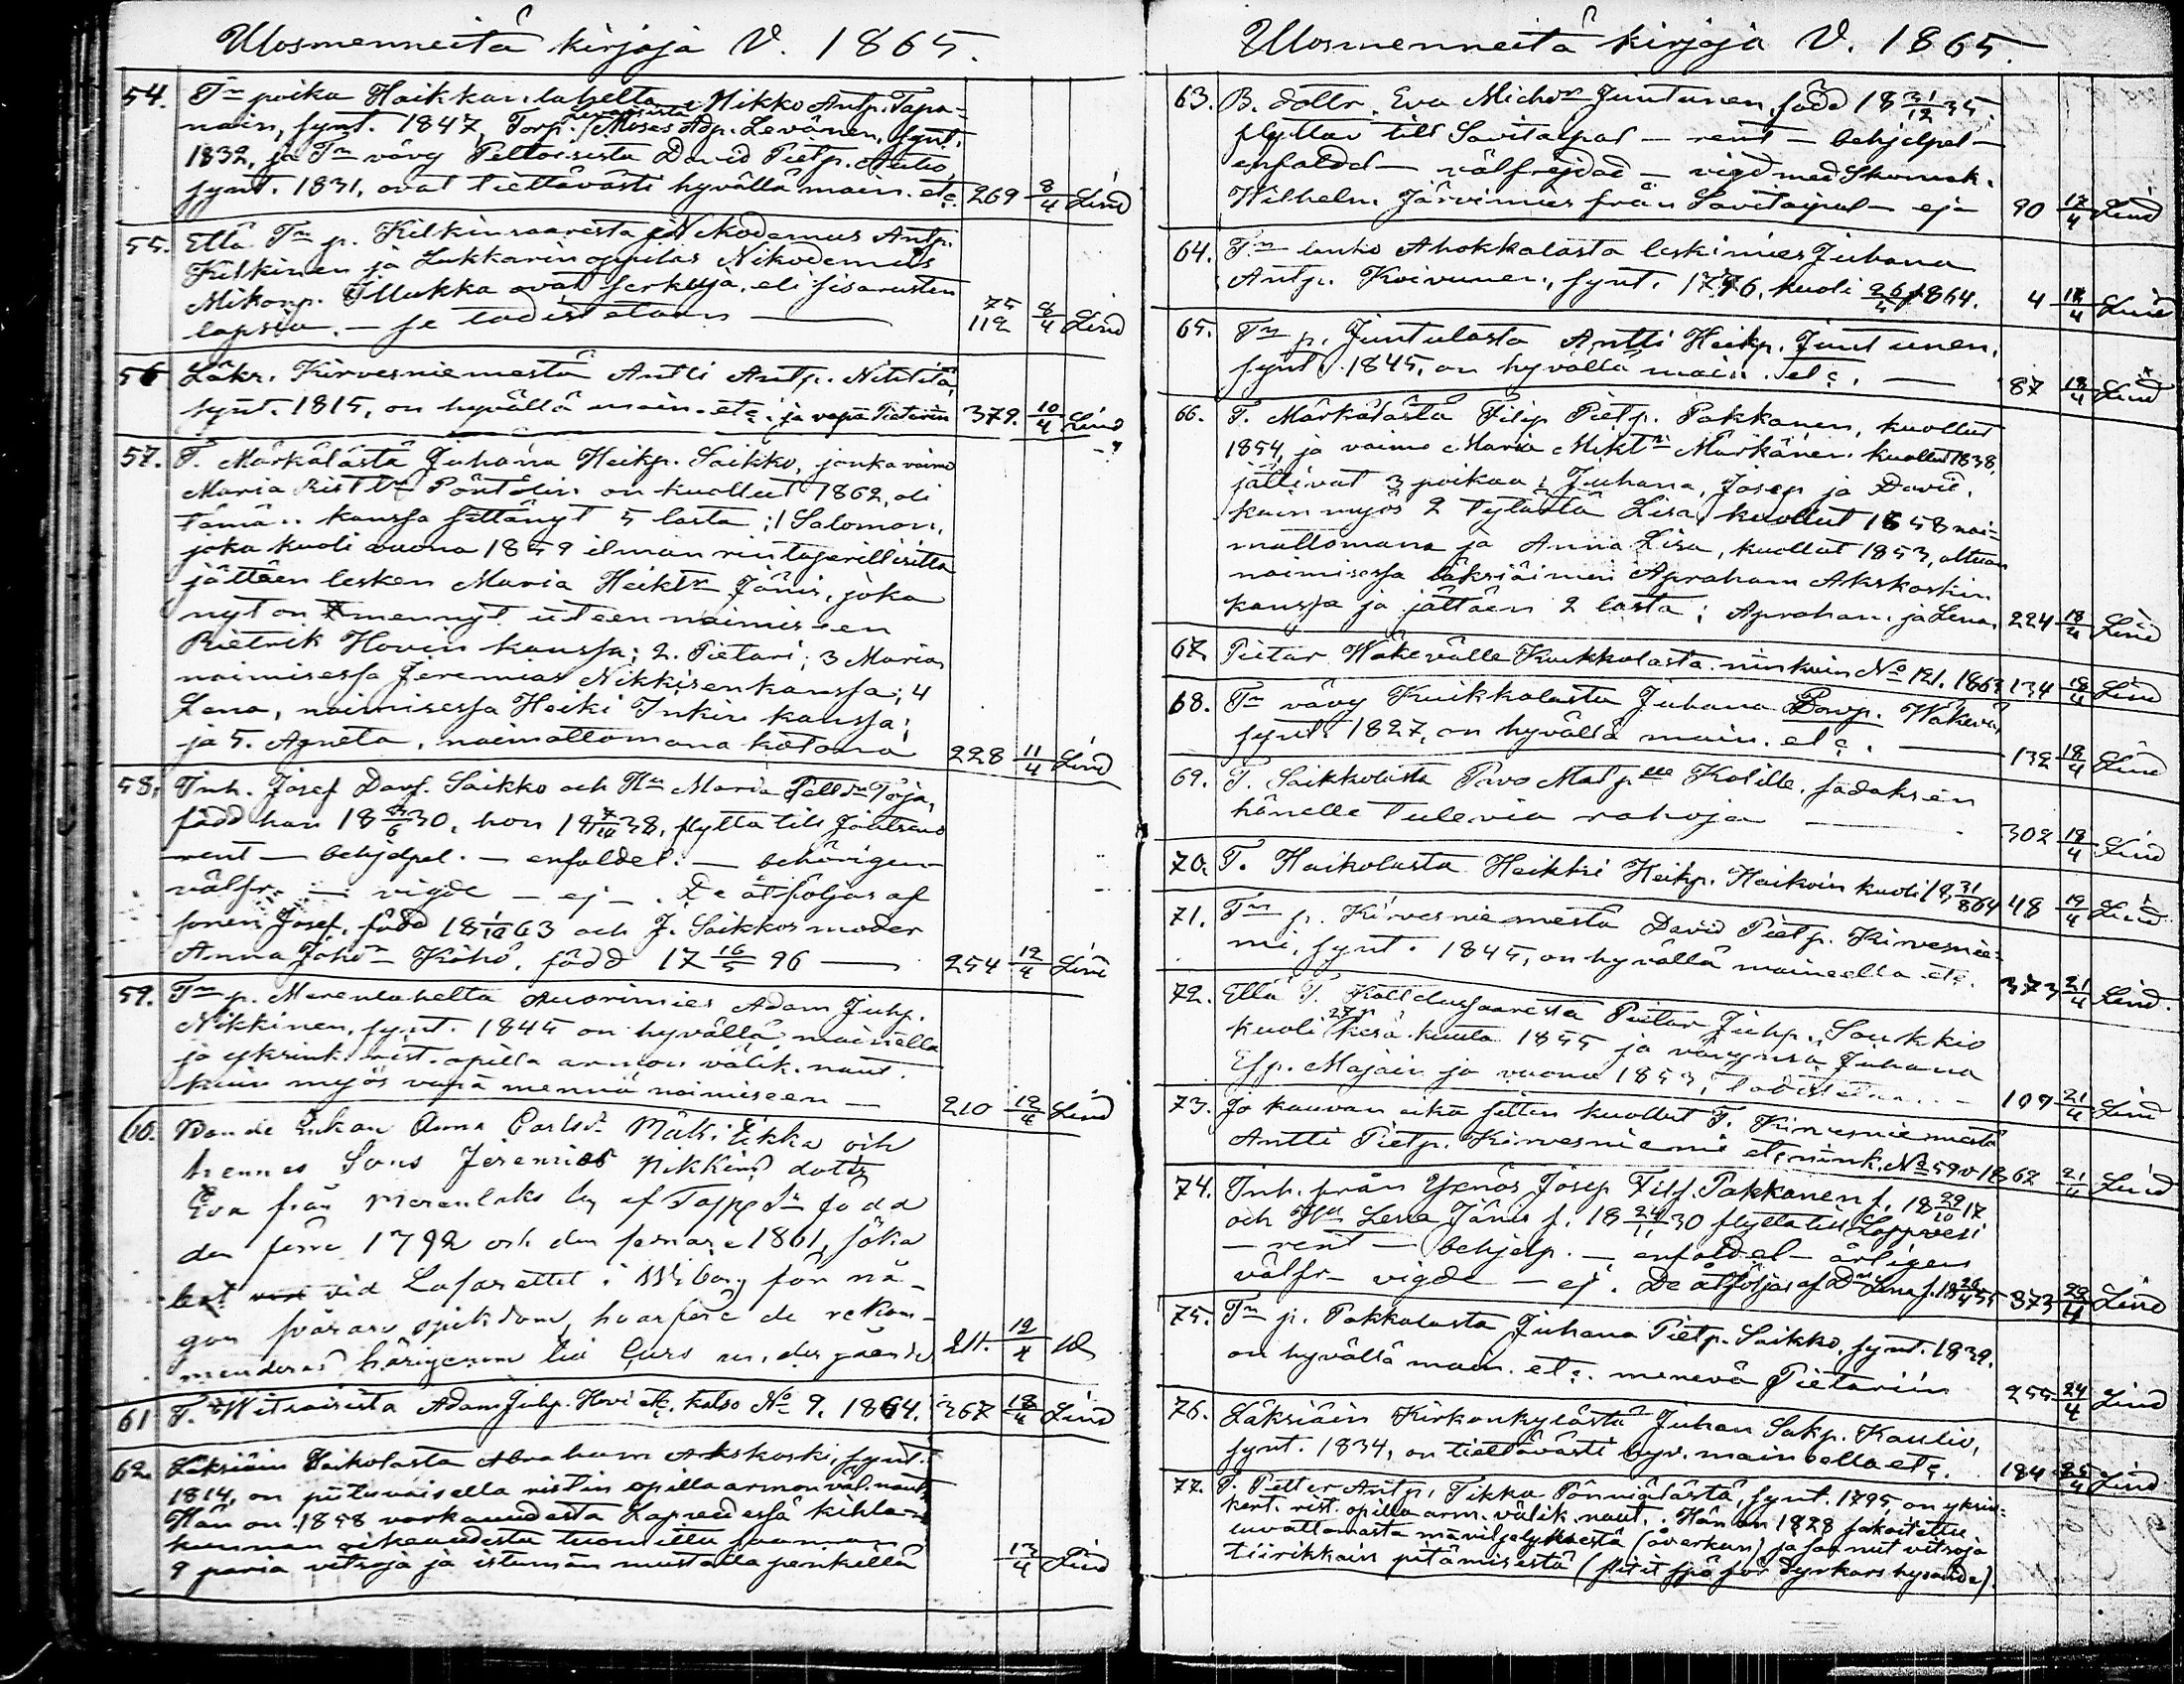 Ulosmenneitä kirjoja V. 1865.
54. Tn poika Haikkanlahelta Mikko Antp. Tapa-
nain, synt. 1847, Torp. Moses Adp. Levänen, synt.
1832, ja Tn vävy Peltoisista David Pietp.
synt. 1831, ovat tiettävästi hyvällä main. etc. 269 8/4 Lind
55. Että Tn p. Kilkinsaaresta Nikodemus Antp.
Kilkinen ja Lukkarin oppilas Nikodemus
Mikonp. Ilukka ovat serkuja, eli sisarusten 75
lapsia. — se todistetaan — 112 8/4 Lind
56 Läkr. Kirvesniemestä Antti Antp.
synt. 1815, on hyvällä main. etc. ja vapa Pietariin 379. 10/4 Lind
57. T. Märkälästä Juhana Heikp. Saikko, jonka vaimo
Maria Risttr Pöntölin on kuollut 1862, oli
tämän kanssa sittänyt 5 lasta: 1 Salomon,
joka kuoli vuona 1859 ilman rintaperillisittä
jättäen lesken Maria Heiktr Jänis, joka
nyt on mennyt uuteen naimiseen
Rietrik Hovin kanssa; 2. Pietari; 3 Maria
naimisessa Jeremias Nikkisen kanssa; 4
Lena, naimisessa Heiki Inkin kanssa;
ja 5. Agneta, naemattomana kotona 228 11/4 Lind
58. Inh. Josef Davs. Saikko och Hu Maria
född han 18 /6 30, hon 18 7/10 38, flytta till Joutseno
rent — behjelpel. — enfaldel. — behörigen
välfr. — vigde — ej —. De åtföljas af
sonen Josef, född 18 1/10 63 och J. Saikkos moder
Anna Johdr Köhö, född 17 16/5 96 — 254 12/4 Lind
59. Tn p. Merenlahelta nuorimies Adam Juhp.
Nikkinen, synt. 1845 on hyvällä mainella
ja yksink. rist. opilla armon välik. naut.
kuin myös vapa mennä naimiseen — 210 12/4 Lind
60. Bonde Enkan Anna Carlsdr Mäki Tikka och
hennes Sons Jeremias Nikkinens dotter
Eva från Merenlaks by af född
den förre 1792 och den sednare 1861, söka
vid Lasarettet i Wiborg för nå-
gon svårare sjukdom, hvarföre de rekom-
menderas härigenom 211. 12/4
61 T. Witsaisista Adam Juhp. Hovi etc. katso No 9. 1864. 367 13/4 Lind
62. Läksiäin Haikolasta Abraham Akskoski, synt.
1814, on puttuvaisella ristin opilla armon väl. naut.
Hän on 1858 varkaudesta Lapvedessä kihla-
kunnan oikeudesta tuomittu saaman
9 paria vitsoja ja istuman mustalla penkillä 13/4 Lind
Ulosmenneitä kirjoja V. 1865.
63. B. dottr. Eva Michdr Juntunen, född 18 31/12 35
flyttar till Savitaipal — rent — behjelpel —
enfaldel — välfrejdad — vigd med Skomak.
Wilhelm Järvinies från Savitaipal — ej 90 17/4 Lind
64. Tn Ahokkalasta leskimies Juhana
Antp. Koivunen, synt. 1776, kuoli 26/5 1864. 4 17/4 Lind
65. Tn p. Juntulasta Antti Heikp. Juntunen,
synt. 1845, on hyvällä main. etc. — 87 18/4 Lind
66. T. Märkälästä Filip Pietp. Pakkanen, kuollut
1854, ja vaimo Maria Miktr Märkänen kuollut 1838,
jättivät 3 poikaa: Juhana, Josep ja David,
kuin myös 2 tytärtä Lisa, kuollut 1858 nai-
mattomana ja Anna Lisa, kuollut 1853, oltuan
naimisessa läksiäimen Apraham Akskoskin
kanssa ja jättäen 2 lasta: Apraham ja Lena. 224 18/4 Lind
67. Pietar Wäkevälle Kuikkolasta ninkuin No 121. 1863 134 18/4 Lind
68. Tn vävy Kuikkolasta Juhana Davp. Wäkevä,
synt. 1827, on hyvällä main. etc. — 132 18/4 Lind
69. T. Saikkolasta Pavo Matp Kolille, sadaksen
hänelle tulevia rahoja — 302 18/4 Lind
70. T. Haikolasta Heikki Heikp. Haikoin kuoli 18 31/8 64 48 19/4 Lind
71. Tn p. Kirvesniemestä David Pietp. Kirvesnie-
mi, synt. 1845, on hyvällä maineella etc. 373 21/4 Lind.
72. Että T. Pietar Juhp. Soukkio
kuoli 27 p kesä kuuta 1855 ja vävynsä Juhana
Esp. Majain jo vuona 1853, todistetaan — 109 21/4 Lind
73. Jo kauvan aika sitten kuollut T. Kirvesniemestä
Antti Pietp. Kirvesniemi etc nink. No 59 v 1862 21/4 Lind
74. Inh. från Yxnös Josep Filf. Pakkanen f. 18 29/10 17
och Hu Lena Jänis f. 18 24/11 30 flytta till Lappvesi
— rent — behjelp. — enfaldel — ärligen
välfr — vigde — ej. De åtföljas af Dr Lena f. 18 26/4 55 373 22/4 Lind
75. Tn p. Pakkalasta Juhana Pietp. Saikko, synt. 1839.
on hyvällä main. etc. menevä Pietariin 255 24/4 Lind
76. Läksiäin Kirkonkylästä Juhan Sakp. Kaulio,
synt. 1834, on tiettävästi hyv. mainella etc. 184 25/4 Lind
77. T. Petter Antp. Tikka Pönniälästä, synt. 1795, on yksin-
kert. rist. opilla arm. välik. naut. Hän on 1828 sakoitettu
luvattomasta (åverkan) ja saanut vitsoja
tiirikkain pitämisestä (slitit spö för dyrkars hysande).